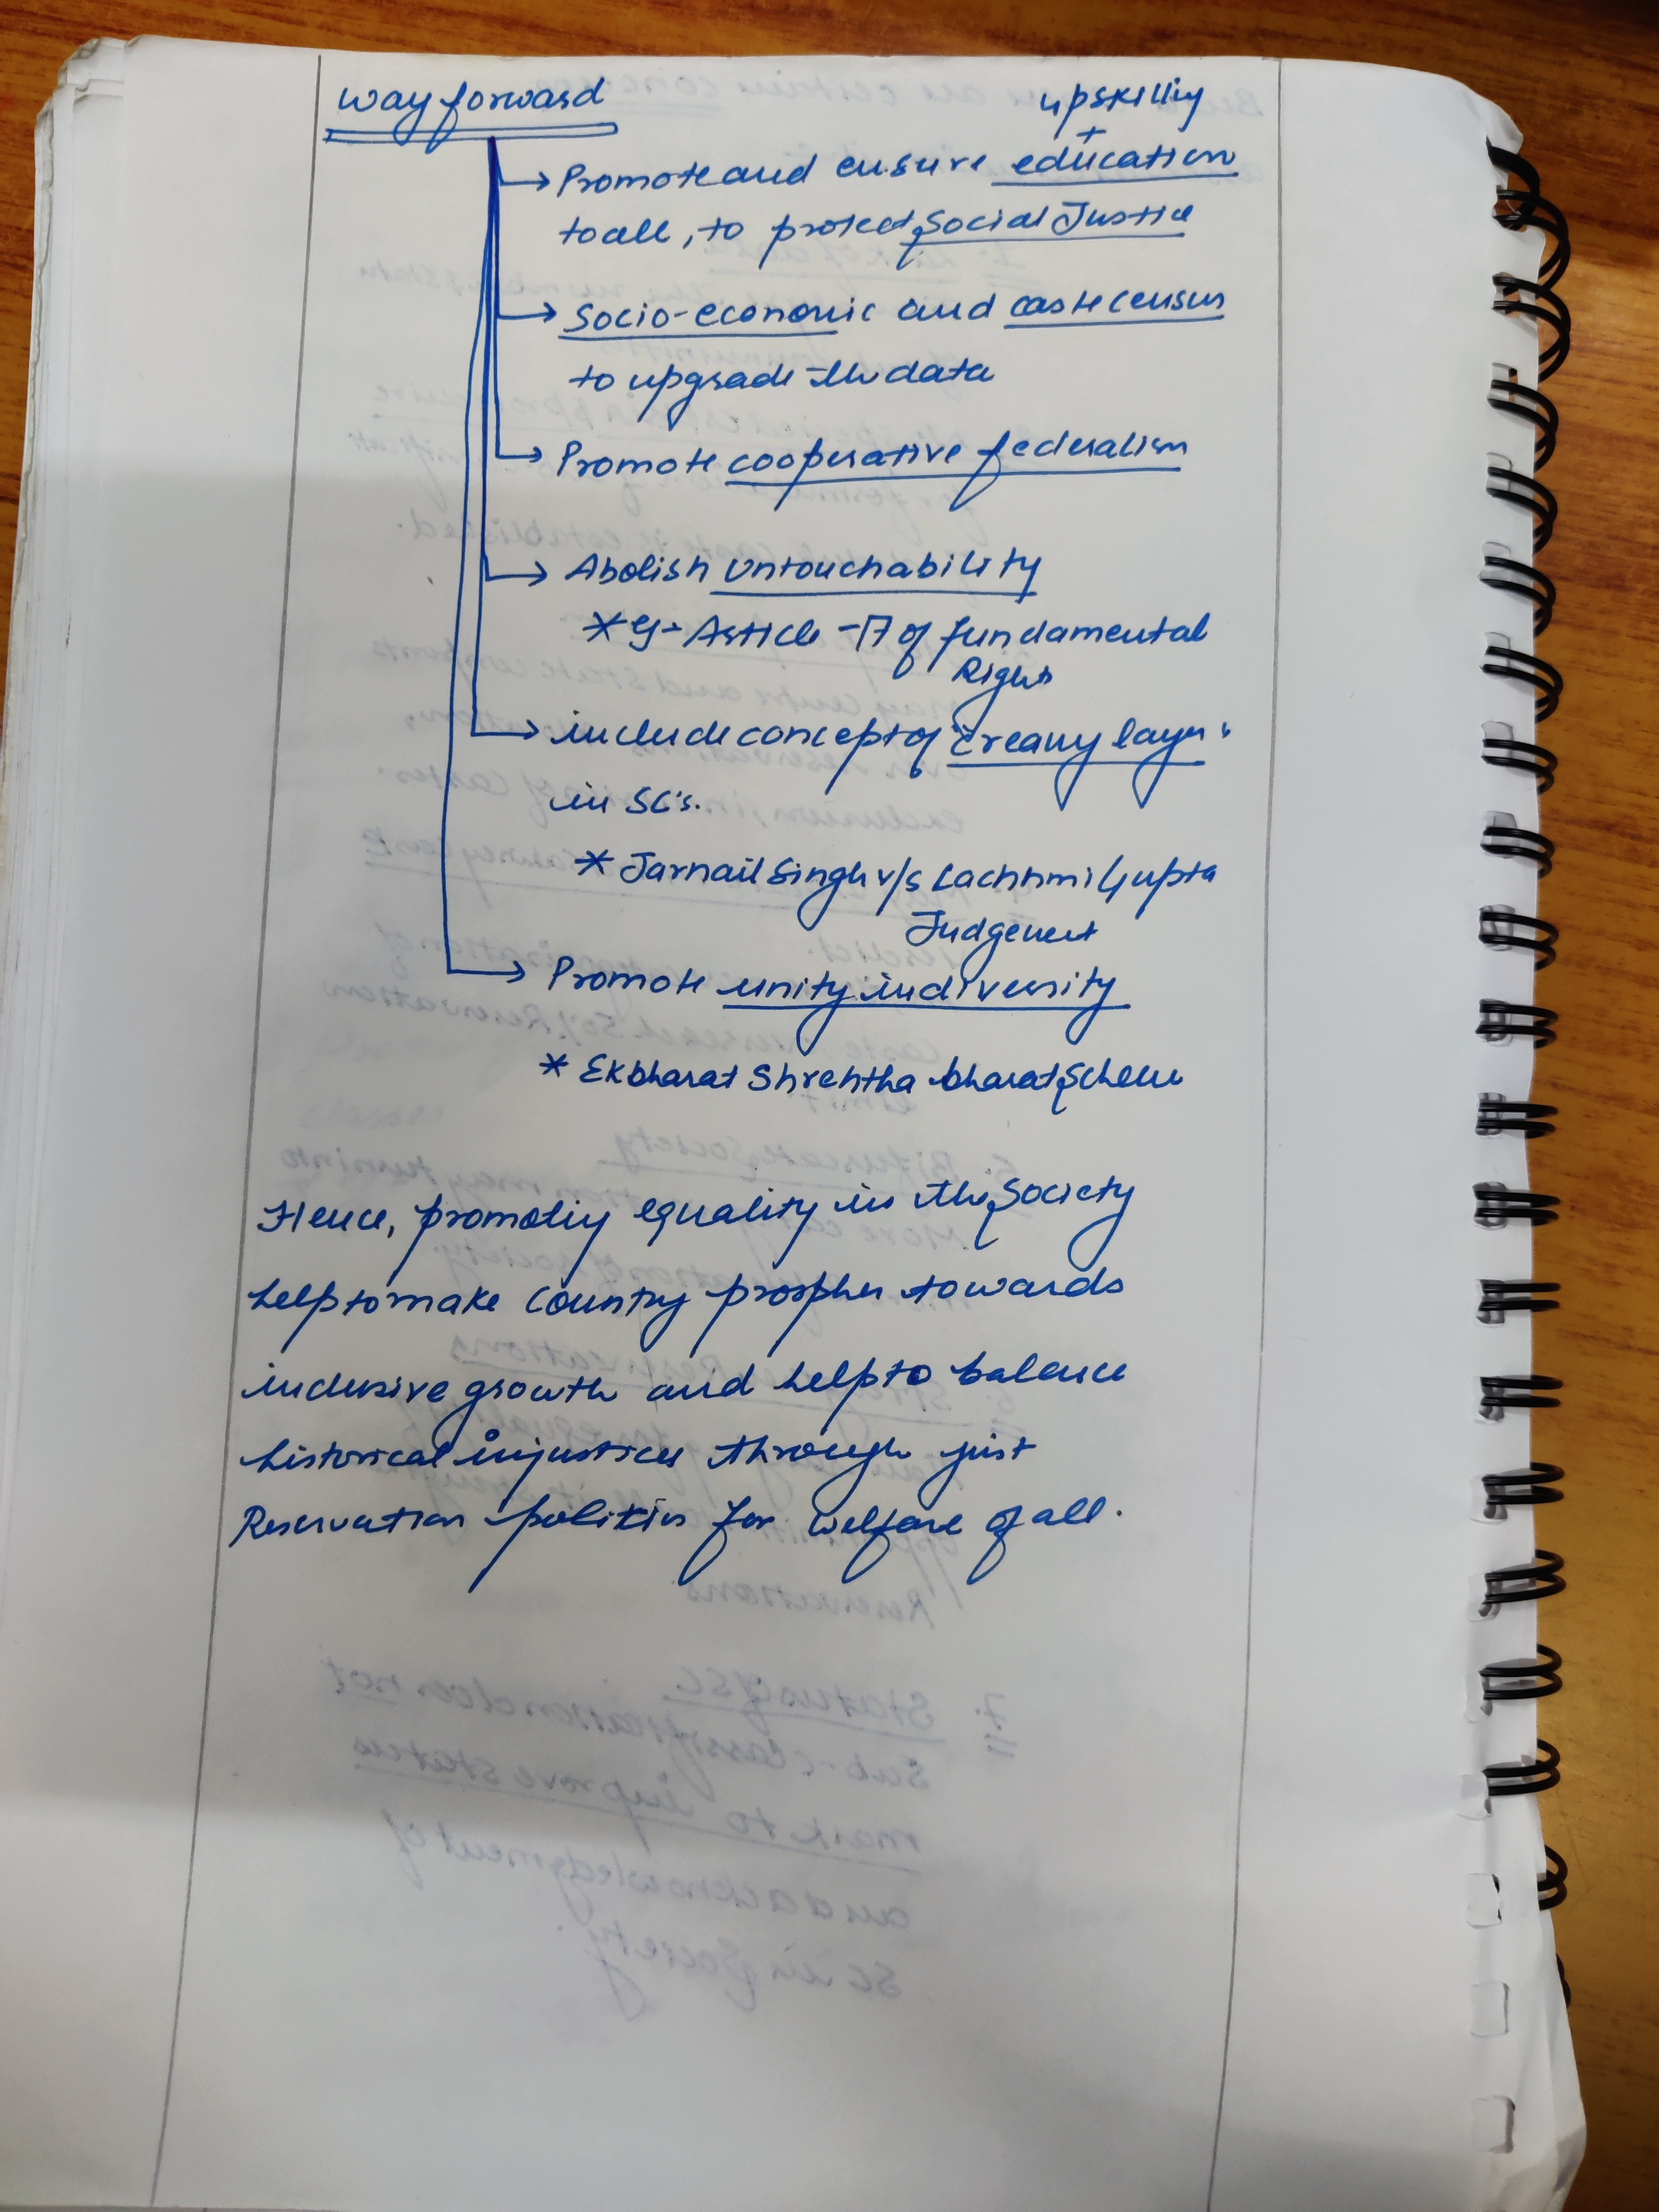 way forward
upskilling
+
Promote and ensure education
to all, to protect Social Justice
Socio-economic and caste census
to upgrade the data
Promote cooperative federalism
Abolish Untouchability
* eg- Article -17 of fundamental
Rights
include concept of "creamy layer"
in SC's.
* Jarnail Singh v/s Lachhmi Gupta
Judgement
Promote unity in diversity
* Ek bharat Shreshtha bharat Scheme
Hence, promoting equality in the Society
help to make Country prospher towards
inclusive growth and help to balance
historical injustices through just
Reservation politics for welfare of all.